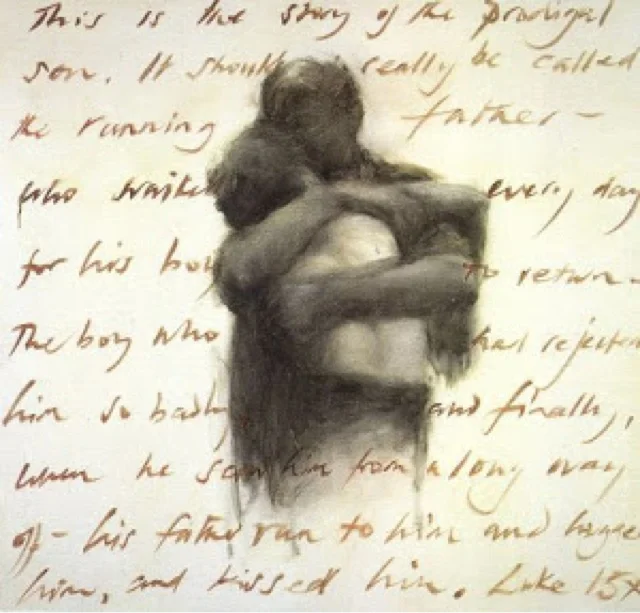 This is the story of the prodigal
son. It should really be called
the running father -
who waited every day
for his boy to return -
The boy who had rejected
him so badly, and finally,
when he saw him from a long way
off - his father run to him and hugged
him, and kissed him. Luke 15